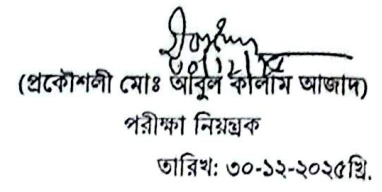 (প্রকৌশলী মোঃ আবুল কালাম আজাদ)
পরীক্ষা নিয়ন্ত্রক
তারিখ: ৩০-১২-২০২৫খ্রি.